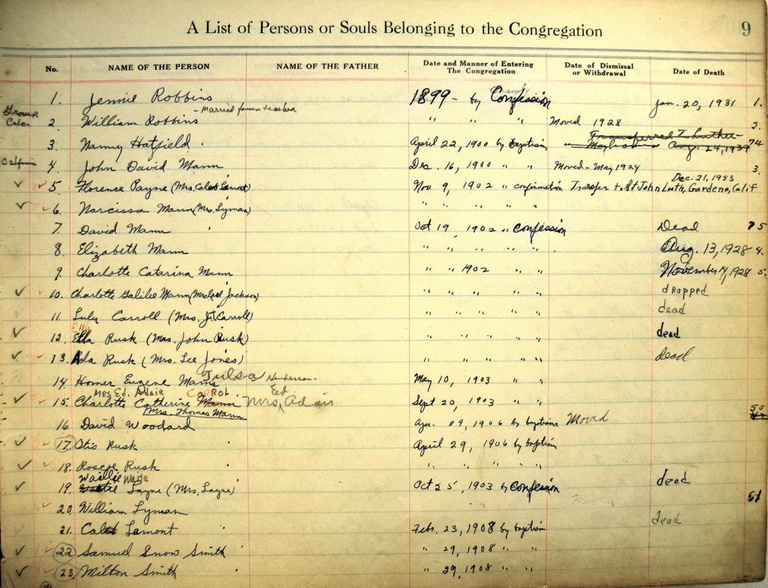 A List of Persons or Souls Belonging to the Congregation 9
No. NAME OF THE PERSON NAME OF THE FATHER Date and Manner of Entering The Congregation Date of Dismissal or Withdrawal Date of Death
1. Jennie Robbins 1899 - by Confession Jan. 20, 1931 1.
- Married
2. William Robbins " " " Moved 1928 2.
3. Nanny Hatfield April 22, 1900 by baptism Aug. 24, 1939 74
4. John David Mann Dec. 16, 1900 " " Moved - May 1924 3.
Dec. 21, 1953
5. Florence Payne (Mrs. Caleb Lemont) Nov 9, 1902 " confirmation Transfer to St John Luth, Gardena, Calif
6. Narcissa Mann (Mrs. Lyman) " " " " "
7. David Mann Oct 19, 1902 " Confession Dead 75
8. Elizabeth Mann " " " " " Aug. 13, 1928 4.
9. Charlotte Catarina Mann " " 1902 " " November 14, 1928 5.
10. Charlotte Galilee Mann (Mrs. Jackson) " " " " " dropped
11. Luly Carroll (Mrs. J. Carroll) " " " " " dead
12. Ella Rusk (Mrs. John Rusk) " " " " " dead
13. Ada Rusk (Mrs. Lee Jones) " " " " " dead
Tulsa
14. Homer Eugene Mann May 10, 1903 " "
Mrs Ed. Adair
15. Charlotte Catherine Mann Mrs. Ed Adair Sept 20, 1903 " "
Mrs. Thomas Mann
16 David Woodard Apr. 09, 1906 by baptism Moved
17 Otis Rusk April 29, 1906 by baptism
18. Roscoe Rusk " " " " "
19. Layne (Mrs. Layne) Oct 25, 1903 by Confession dead
51
20. William Lyman
21. Caleb Lemont Feb. 23, 1908 by baptism dead
22. Samuel Snow Smith " 29, 1908 " "
23. Milton Smith " 29, 1908 " "